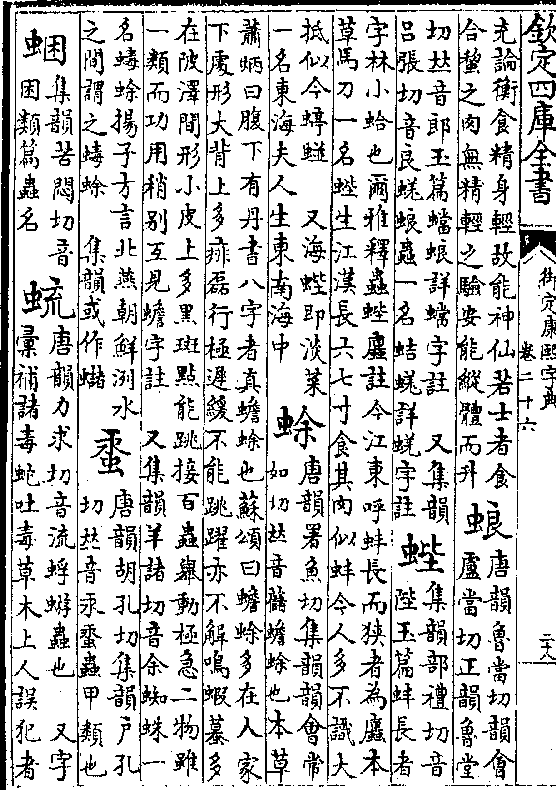 欽定四庫全書
御定康熙字典
卷二十六
二十八
充論衡食精身輕故能神仙若士者食
合蜇之肉無精輕之驗安能縱體而升
蜋唐韻魯當切韻會
盧當切正韻魯堂
切𠀤音郎玉篇蟷蜋詳蟷字註 又集韻
呂張切音良蜣蜋蟲一名蛣蜣詳蜣字註 蜌集韻部禮切音
陛玉篇蚌長者
字林小蛤也爾雅釋蟲蜌螷註今江東呼蚌長而狹者為螷本
草馬刀一名蜌生江漢長六七寸食其肉似蚌今人多不識大
抵似今蟶 又海蜌即淡菜
一名東海夫人生東南海中 蜍唐韻署魚切集韻韻會常
如切𠀤音蟾蜍也本草
蕭炳曰腹下有丹書八字者真蟾蜍也蘇頌曰蟾蜍多在人家
下處形大背上多痱磊行極遲緩不能跳躍亦不解鳴蝦蟇多
在陂澤間形小皮上多黑斑點能跳接百蟲舉動極急二物雖
一類而功用稍别互見蟾字註 又集韻羊諸切音余蜘蛛一
名蝳蜍揚子方言北燕朝鮮洌水
之間謂之蝳蜍 集韻或作蠩 蛬唐韻胡孔切集韻戶孔
切𠀤音汞蛬蟲甲類也
蜠集韻苦悶切音
困類篇蟲名 蜖唐韻力求切音流蜉蝣蟲也 又字
彙補諸毒蛇吐毒草木上人誤犯者